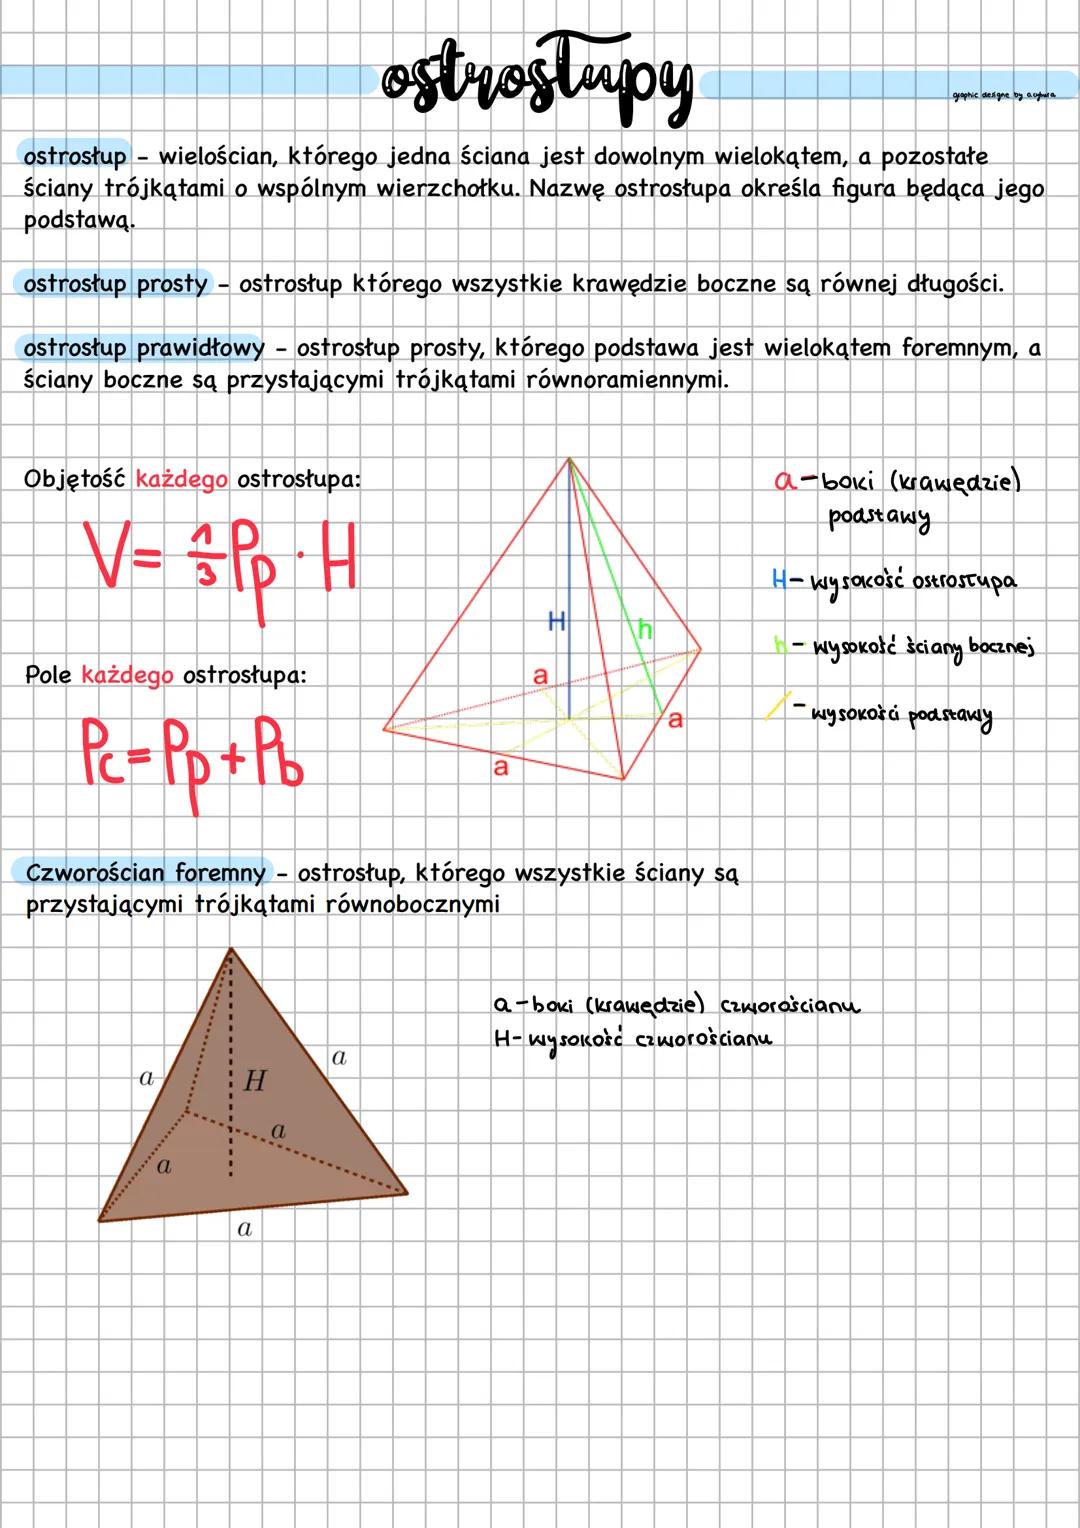 ostrosłupy
graphic designe by
ostrosłup - wielościan, którego jedna ściana jest dowolnym wielokątem, a pozostałe
ściany trójkątami o wspólnym wierzchołku. Nazwę ostrosłupa określa figura będąca jego
podstawą.
ostrosłup prosty - ostrosłup którego wszystkie krawędzie boczne są równej długości.
ostrosłup prawidłowy - ostrosłup prosty, którego podstawa jest wielokątem foremnym, a
ściany boczne są przystającymi trójkątami równoramiennymi.
Objętość każdego ostrosłupa:
V = 1/3 Pp · H
Pole każdego ostrosłupa:
Pc = Pp + Pb
H
h
a
a
a
a - boki (krawędzie)
podstawy
H - wysokość ostrosłupa
h - wysokość ściany bocznej
- wysokości podstawy
Czworościan foremny - ostrosłup, którego wszystkie ściany są
przystającymi trójkątami równobocznymi
a
a
H
a
a
a
a - boki (krawędzie) czworościanu
H - wysokość czworościanu